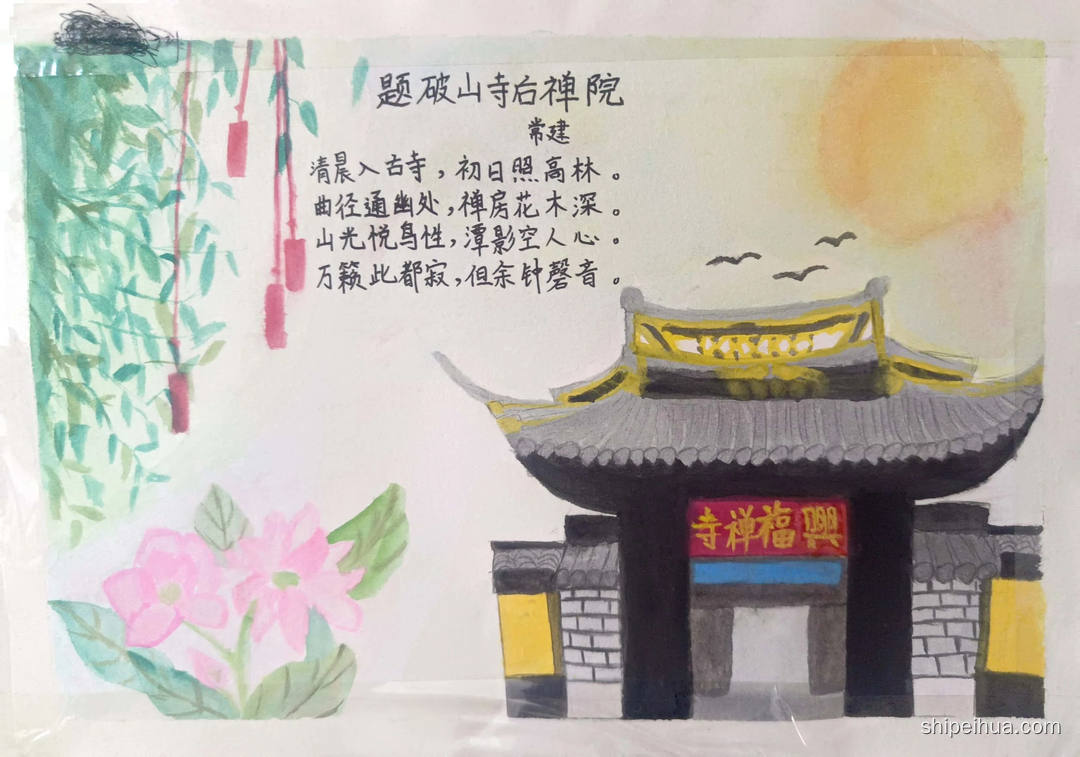 题破山寺后禅院
常建
清晨入古寺，初日照高林。
曲径通幽处，禅房花木深。
山光悦鸟性，潭影空人心。
万籁此都寂，但余钟磬音。
興福禅寺
shipeihua.com